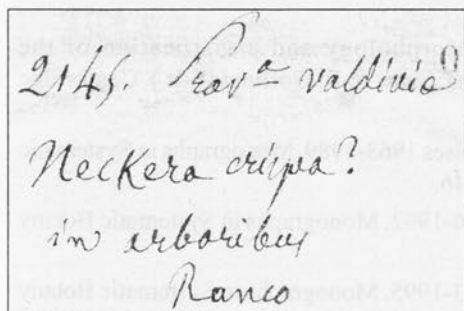 2145. Prov.ª Valdivia
Neckera crispa?
in arboribus
Ranco